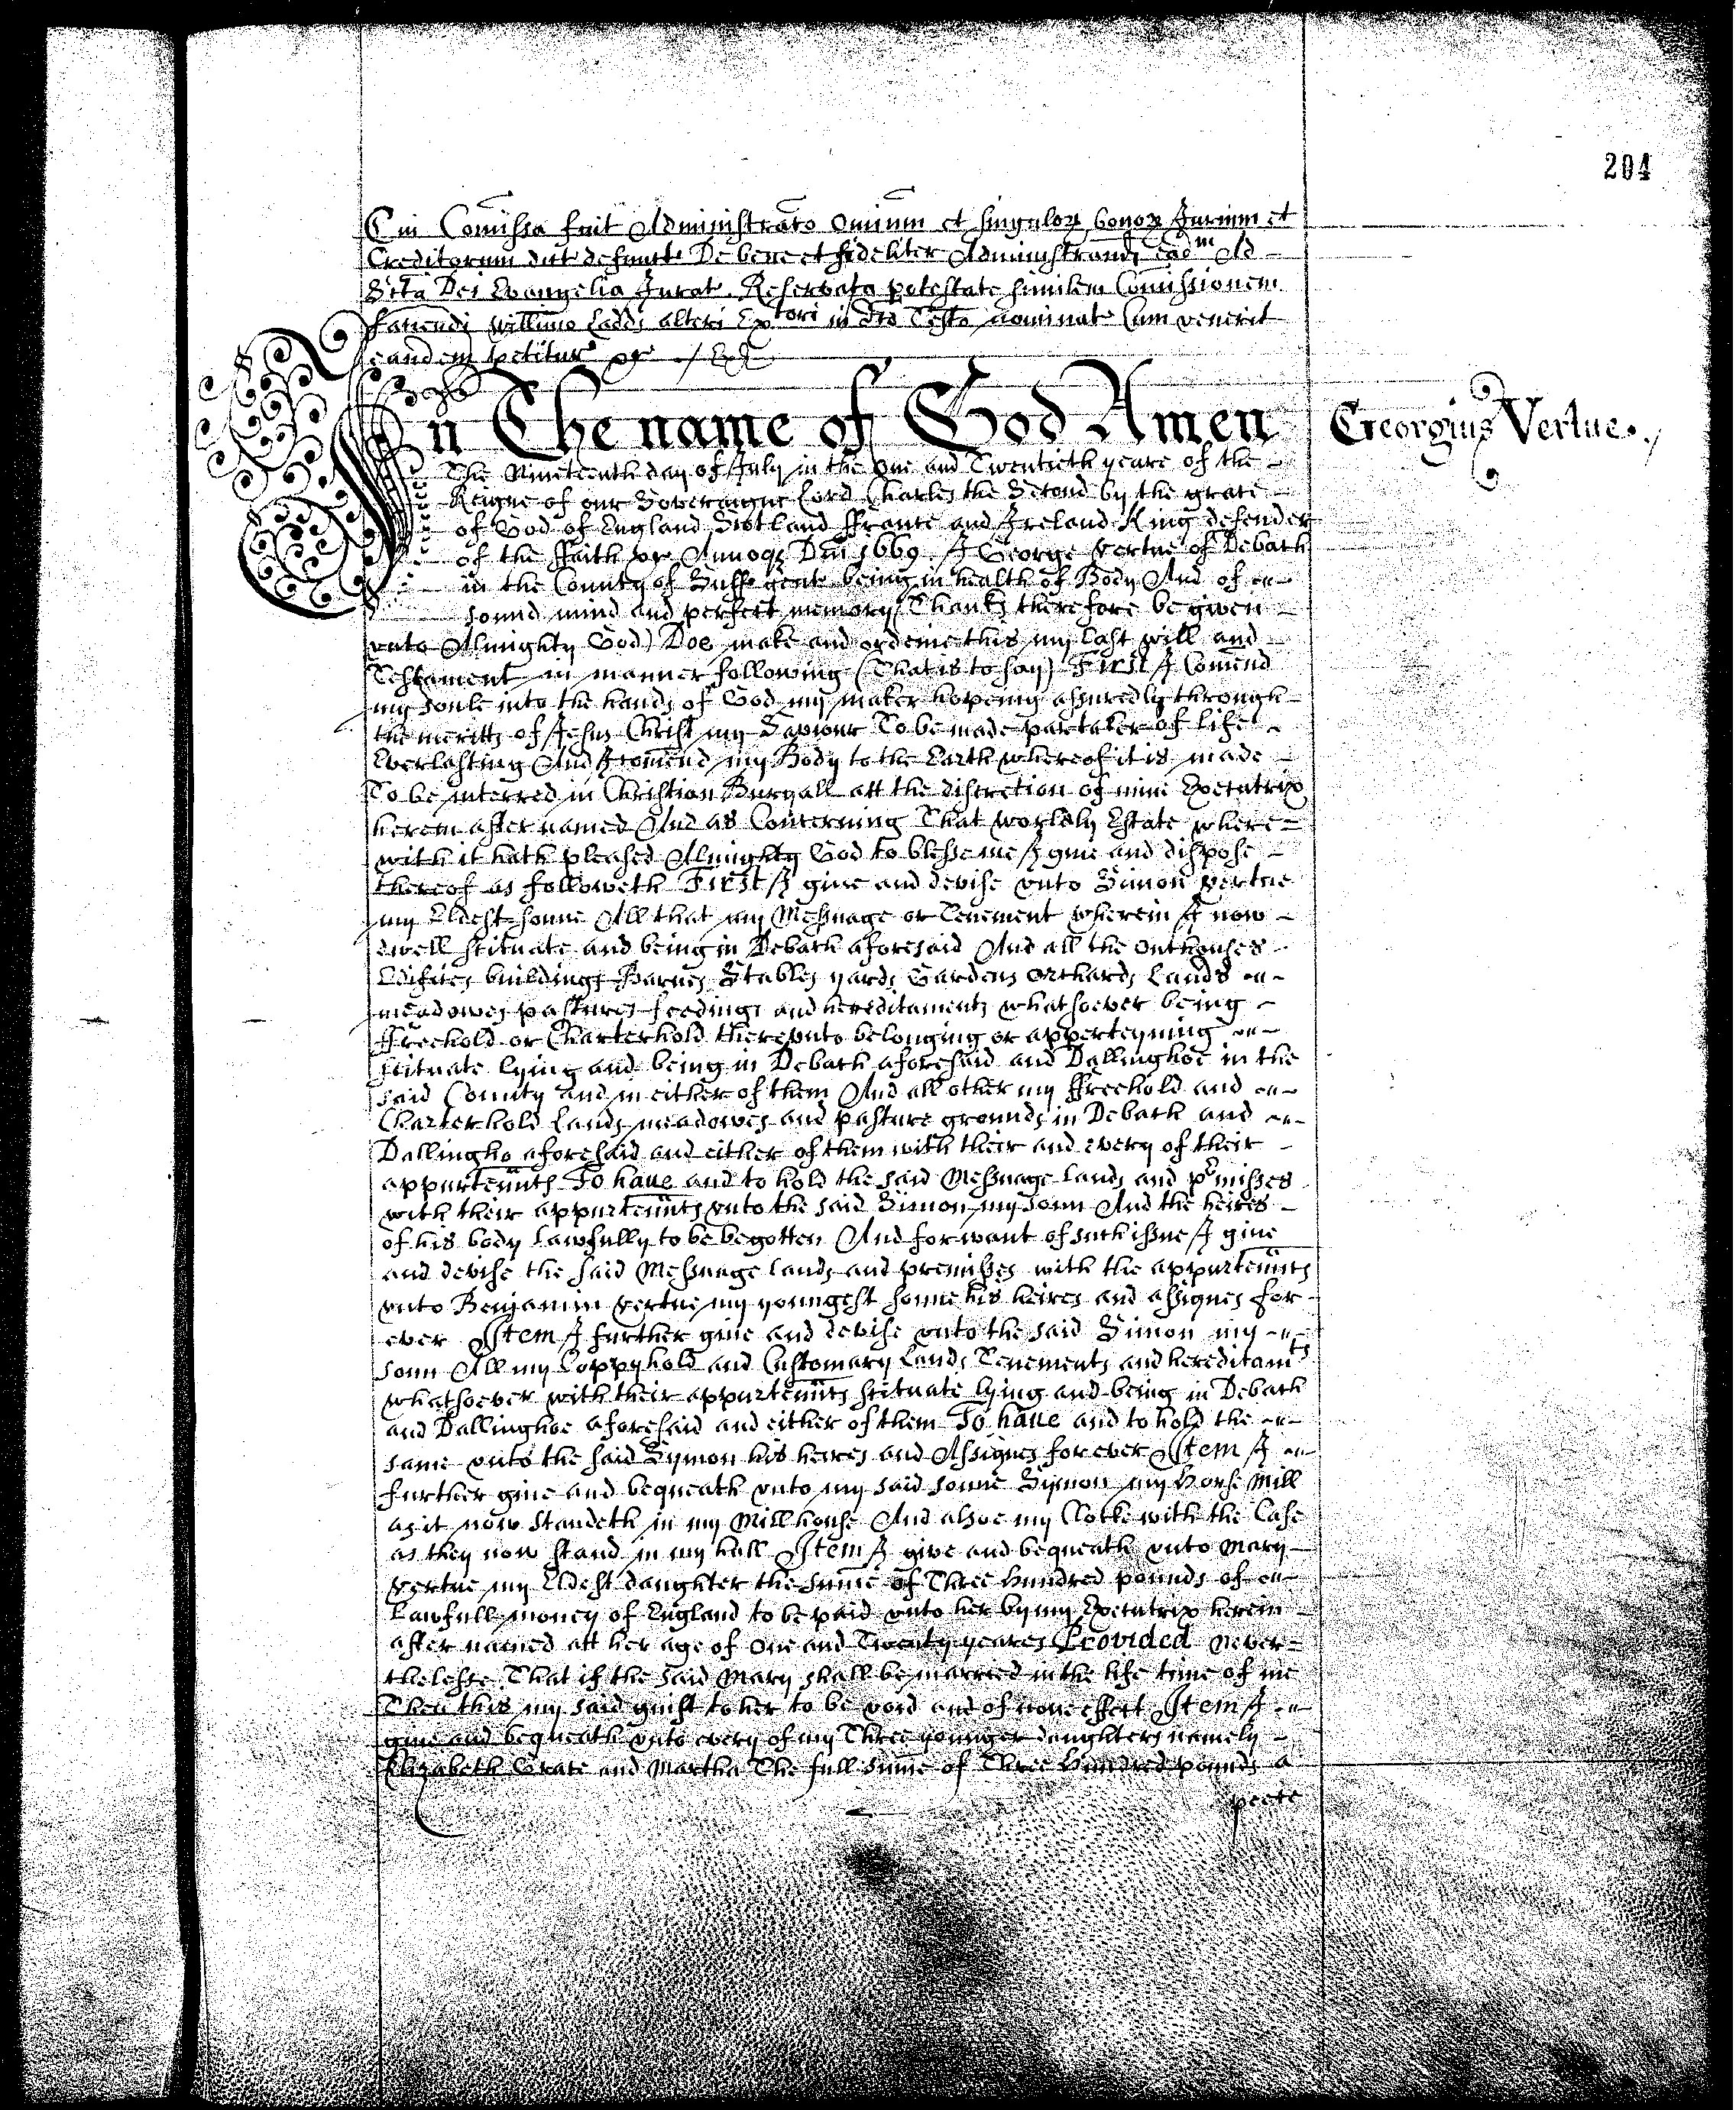 204
Cui Comissa fuit Administraco omium et singulor bonor Jurium et
Creditorum dict defuncti De bene et fideliter Administrand ead^m Ad
Scta Dei Evangelia Jurat. Reservata potestate similem Comissionem
faciendi Willimo Ladd alteri Ex^tori in dco Testo nominat Cum venerit
eandem petitur
In The name of God Amen
Georgius Vertue
The Nineteenth day of July in the one and Twentieth yeare of the
Reigne of our Soveraigne Lord Charles the Second by the grace
of God of England Scotland ffrance and Ireland King defender
of the ffaith &c Annoq Dni 1669 I George Vertue of Debach
in the County of Suff gent being in health of Body And of
sound mind and perfect memory (Thanks therefore be given
vnto Almighty God) Doe make and ordeine this my last will and
Testament in manner following (That is to say) First I Comend
my soule into the hands of God my maker hopeing assuredly through
the meritts of Jesus Christ my Saviour To be made partaker of life
Everlasting And I comend my Body to the Earth whereof it is made
To be interred in Christian Buryall att the discretion of mine Executrix
herein after named And as Concerning That worldly Estate where=
with it hath pleased Almighty God to blesse me I giue and dispose
thereof as followeth First I giue and devise vnto Simon Vertue
my Eldest sonne All that my Messuage or Tenement wherein I now
dwell scituate and being in Debach aforesaid And all the outhouses
Edifices buildings Barnes Stables yards Gardens Orchards Lands
meadowes pastures feedings and hereditaments whatsoever being
ffreehold or Charterhold therevnto belonging or apperteyning
scituate lying and being in Debach aforesaid and Dallinghoe in the
said County and in either of them And all other my ffreehold and
Charterhold Lands meadowes and pasture grounds in Debach and
Dallingho aforesaid and either of them with their and every of their
appurtennts To haue and to hold the said Messuage Lands and p^rmisses
with their appurtennts vnto the said Simon my sonn And the heires
of his body Lawfully to be begotten And for want of such issue I giue
and devise the said Messuage lands and premisses with the appurtennts
vnto Benjamin Vertue my youngest sonne his heires and assignes for
ever Item I further giue and devise vnto the said Simon my
sonn All my Coppyhold and Customary Lands Tenements and hereditam^ts
whatsoever with their appurtennts scituate lying and being in Debach
and Dallinghoe aforesaid and either of them To haue and to hold the
same vnto the said Symon his heires and Assignes for ever Item I
further giue and bequeath vnto my said sonne Symon my Horse Mill
as it now standeth in my Millhouse And alsoe my Clocke with the Case
as they now stand in my hall Item I give and bequeath vnto Mary
Vertue my Eldest daughter the summe of Three hundred pounds of
Lawfull money of England to be paid vnto her by my Executrix herein
after named att her age of One and Twenty yeares Provided never=
thelesse That if the said Mary shall be married in the life time of me
Then this my said guift to her to be void and of none effect Item I
giue and bequeath vnto every of my Three younger daughters namely
Elizabeth Grace and Martha The full summe of Three Hundred pounds a
peece